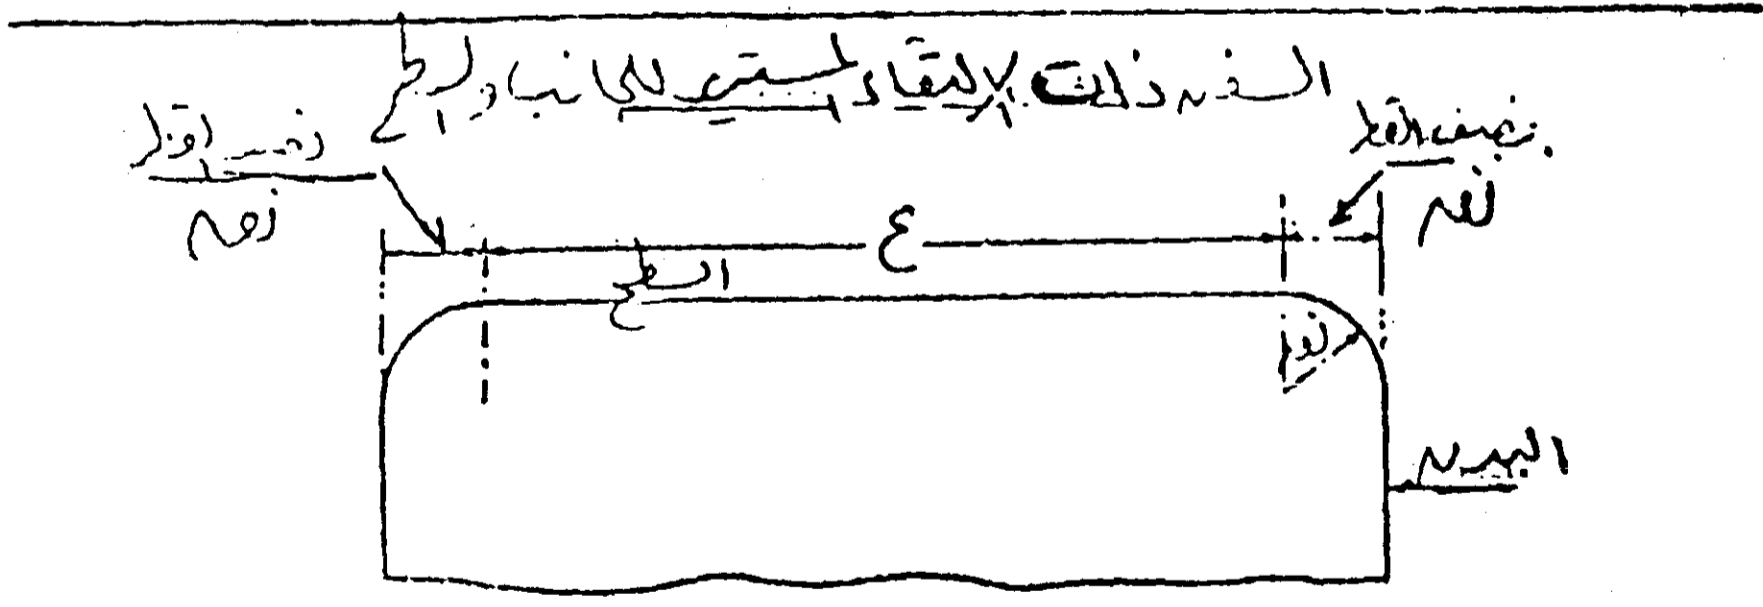 السفن ذات الإلتقاء المستدير للجانب والسطح
نصف القطر
نق
نصف القطر
نق
ع
السطح
نق
البدن